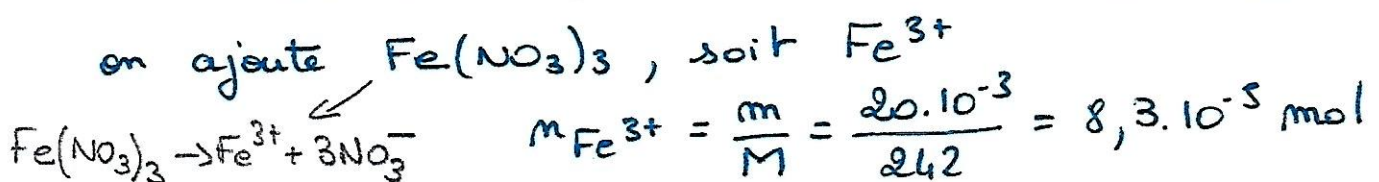 on ajoute Fe(NO₃)₃, soit Fe³⁺
Fe(NO₃)₃ → Fe³⁺ + 3NO₃⁻
n Fe³⁺ = m/M = 20.10⁻³/242 = 8,3.10⁻⁵ mol